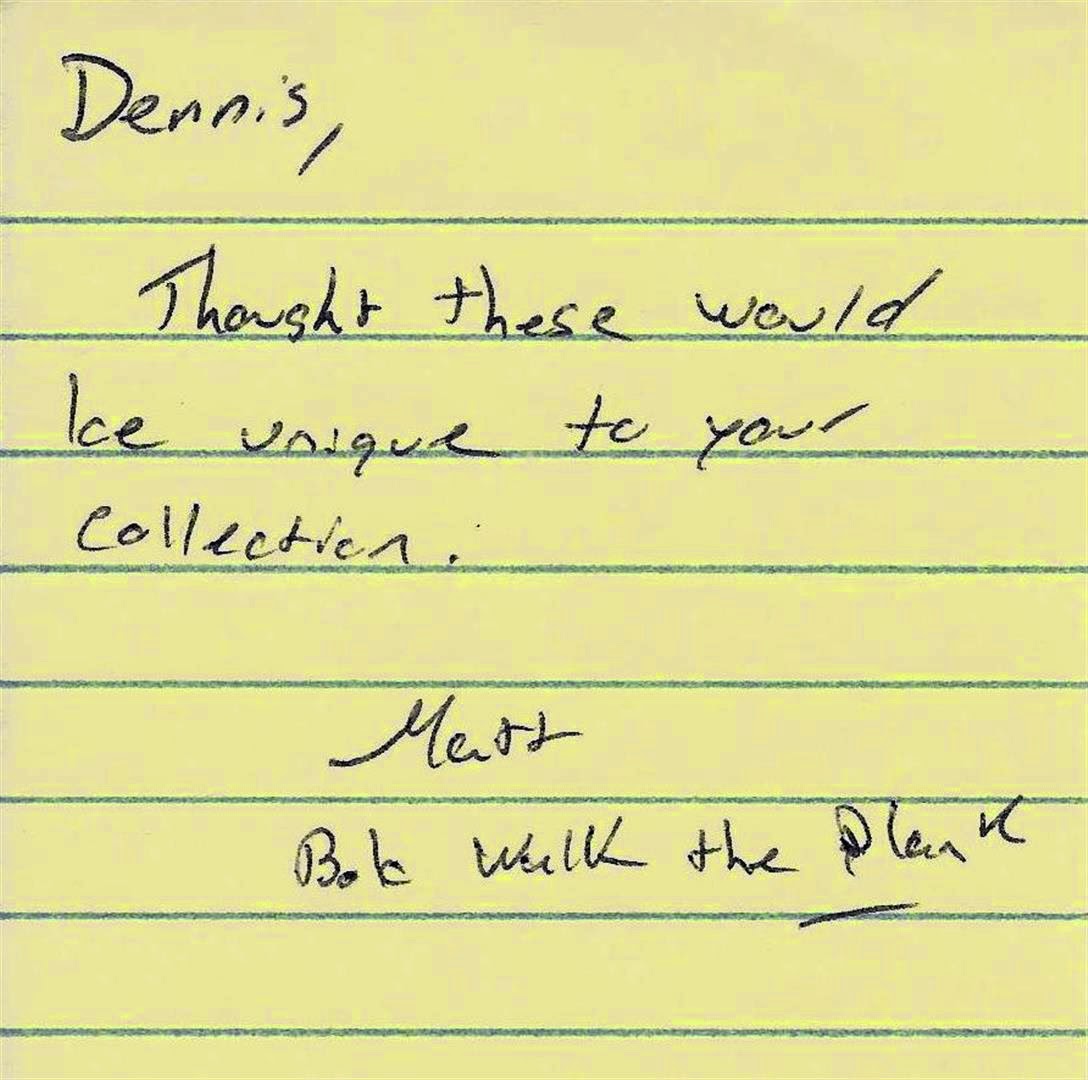 Dennis,
Thought these would
be unique to your
collection.
Matt
Bob Walk the Plank